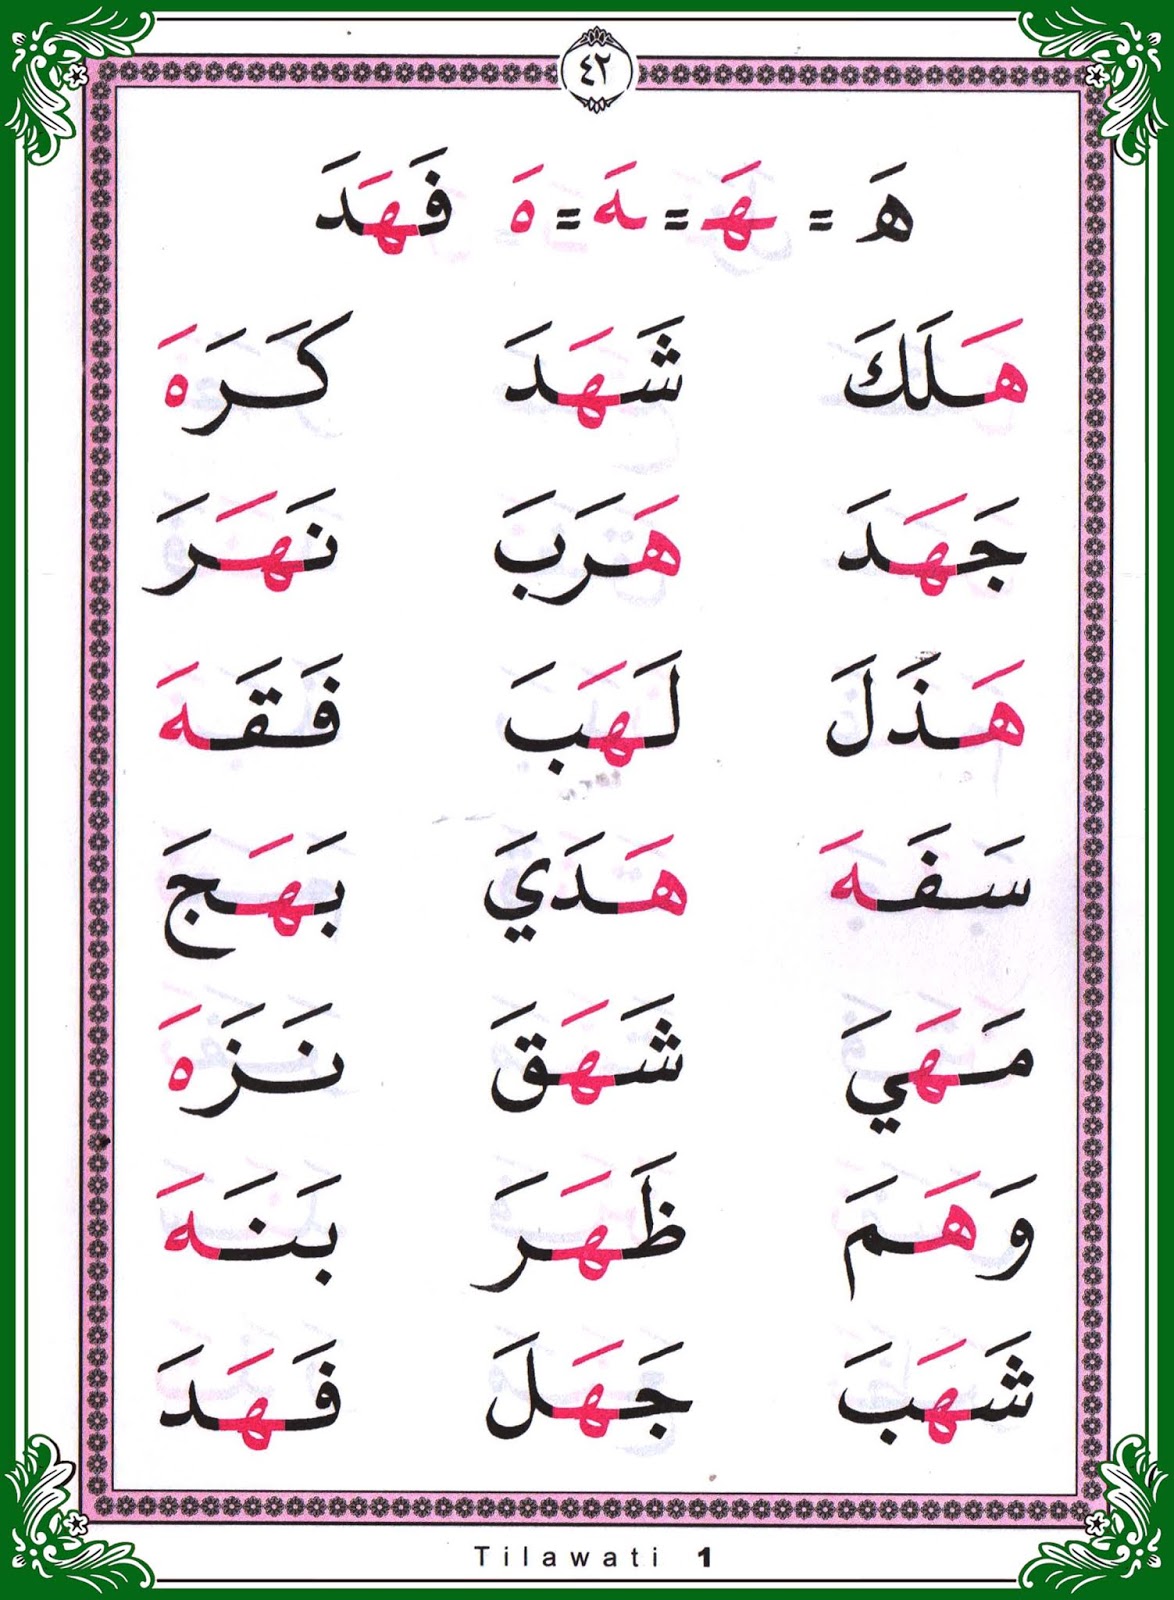 ٤٢
هَ = ـهَـ = ـهَ = هَ فَهَدَ
هَلَكَ شَهَدَ كَرَهَ
جَهَدَ هَرَبَ نَهَرَ
هَذَلَ لَهَبَ فَقَهَ
سَفَهَ هَدَيَ بَهَجَ
مَهَيَ شَهَقَ نَزَهَ
وَهَمَ ظَهَرَ بَنَهَ
شَهَبَ جَهَلَ فَهَدَ
Tilawati 1